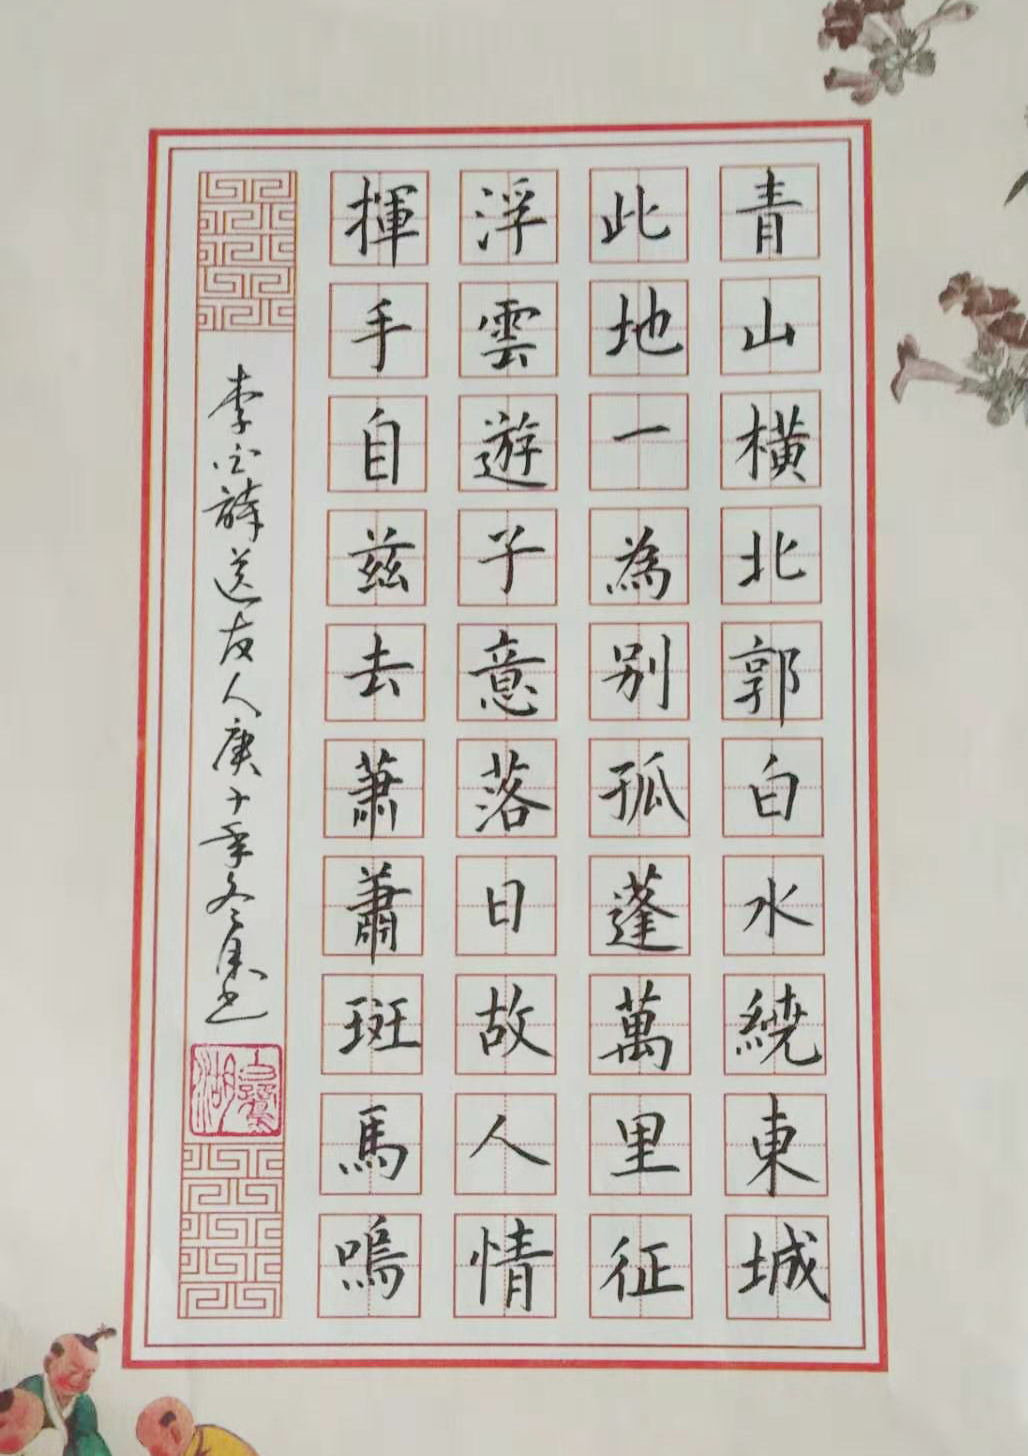 青山橫北郭白水繞東城
此地一為别孤蓬萬里征
浮雲遊子意落日故人情
揮手自茲去蕭蕭斑馬鳴
李白詩送友人庚子年冬书
白鷺湖